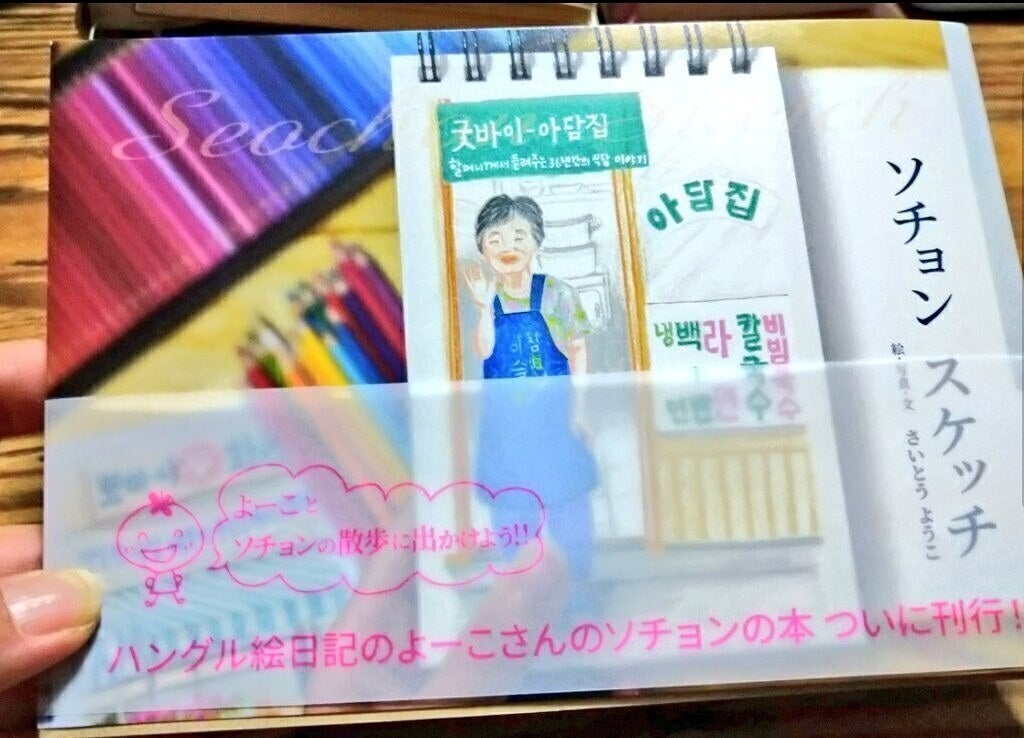 Seoch
굿바이-아담집
할머니께서 들려주는 36년간의 식담 이야기
아담집
냉
백
라
칼국수
비빔국수
ソチョン スケッチ
絵・写真・文 さいとう ようこ
よーこと
ソチョンの散歩に出かけよう!!
ハングル絵日記のよーこさんのソチョンの本 ついに刊行!